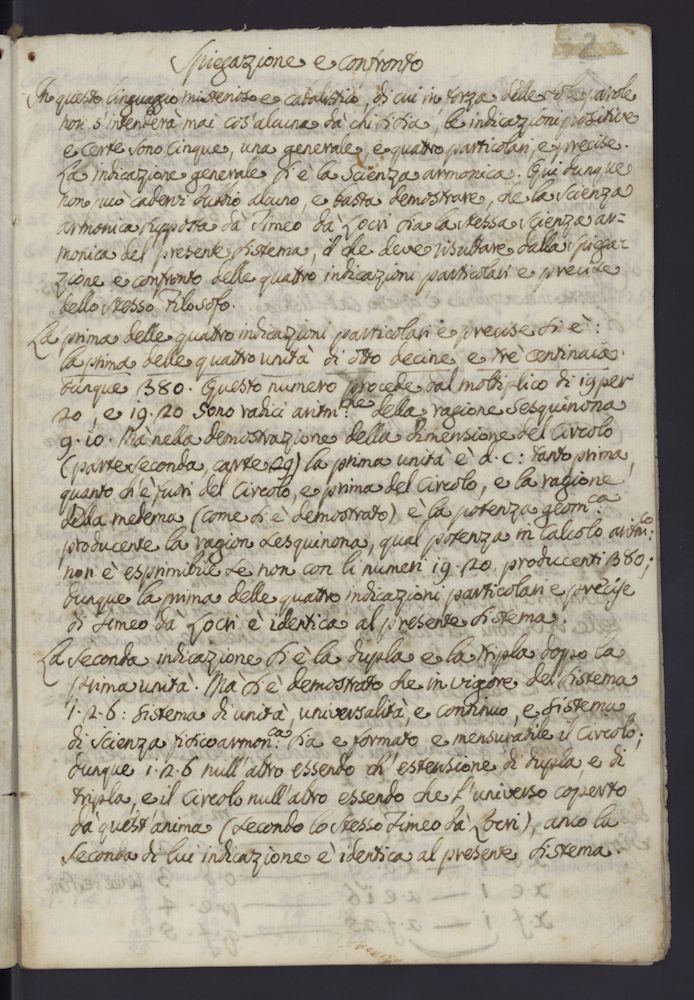 2
Spiegazione e confronto
In questo linguaggio misterioso e cabalistico, di cui in forza delle sole parole
non s'intenderà mai cos'alcuna da chi si sia, le indicazioni positive
e certe sono cinque, una generale, e quattro particolari, e precise.
La indicazione generale si è la scienza armonica. Qui dunque
non può cadervi dubbio alcuno, e basta demostrare, che la scienza
armonica supposta da Timeo da Locri sia la stessa scienza ar=
monica del presente sistema, il che deve risultare dalla spiega=
zione e confronto delle quattro indicazioni particolari e precise
dello stesso Filosofo.
La prima delle quattro indicazioni particolari e precise si è:
la prima delle quattro unità di otto decine e tre centinaia.
dunque 380. Questo numero procede dal moltiplico di 19 per
20, e 19.20 sono radici aritm:che della ragione sesquinona
9.10. Mà nella demostrazione della dimensione del Circolo
(parte seconda, carte 29) la prima unità è d.c: tanto prima,
quanto ch'è fuori del Circolo, e prima del Circolo, e la ragione
della medema (come si è demostrato) è la potenza geom:ca
producente la ragion sesquinona, qual potenza in calcolo aritm:co
non è esprimibile se non con li numeri 19.20. producenti 380;
dunque la prima delle quattro indicazioni particolari e precise
di Timeo da Locri è identica al presente sistema.
La seconda indicazione si è la dupla e la tripla doppo la
prima unità. Mà si è demostrato che in vigore del sistema
1.2.6: sistema di unità, universalità, e continuo, e sistema
di scienza fisicoarmon:ca sia e formato e mensurabile il Circolo;
dunque 1.2.6 null'altro essendo ch'estensione di dupla, e di
tripla, e il Circolo null'altro essendo che l'universo coperto
da quest'anima (secondo lo stesso Timeo da Locri), anco la
seconda di lui indicazione è identica al presente sistema.